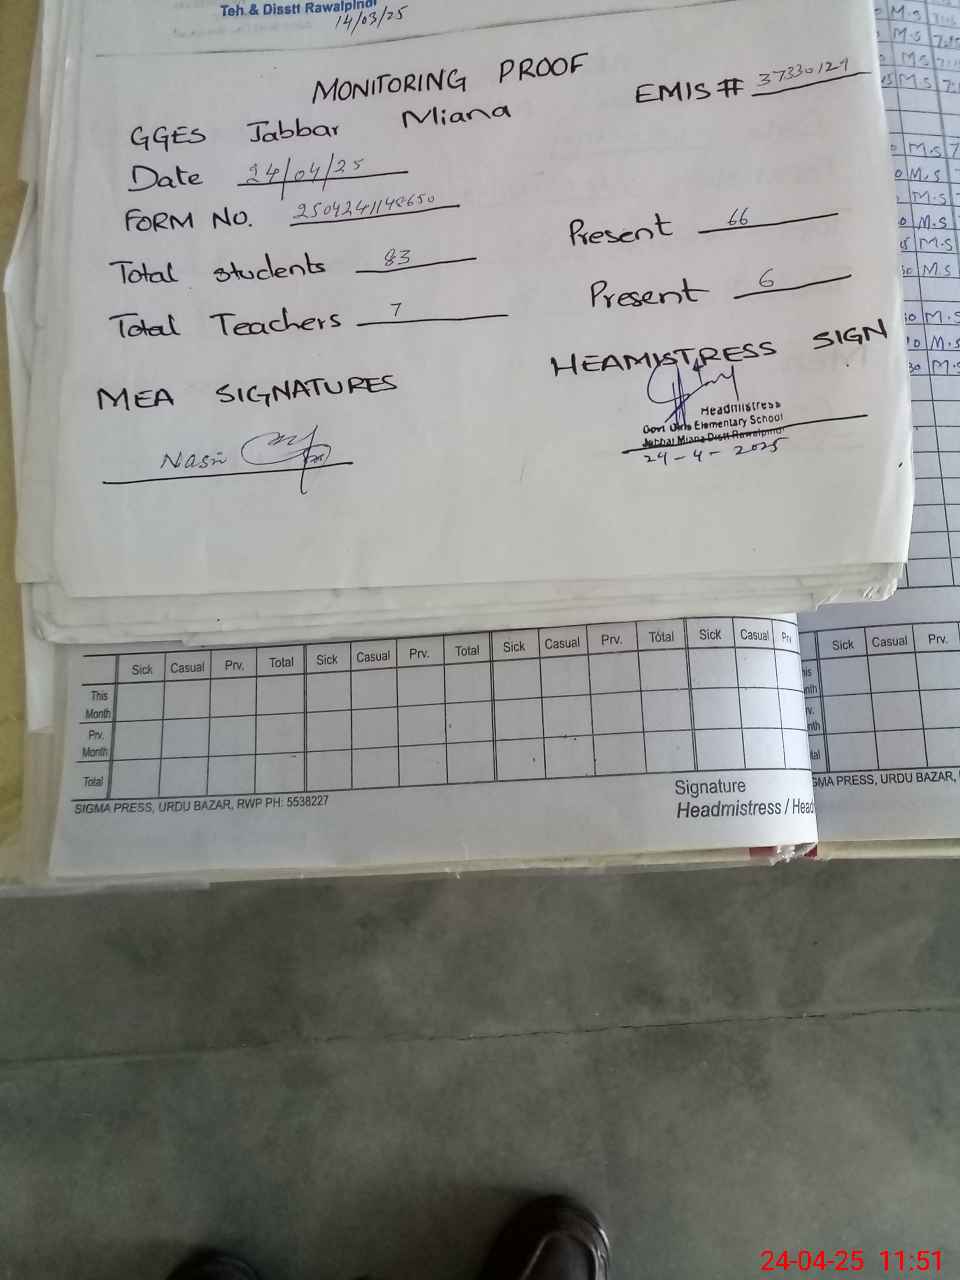 Teh. & Disstt Rawalpindi
14/03/25
MONITORING PROOF
EMIS # 37330129
GGES Jabbar Miana
Date 24/04/25
FORM NO.
Total students 83 Present 66
Total Teachers 7 Present 6
MEA SIGNATURES HEAMISTRESS SIGN
Headmistress
Govt Girls Elementary School
Jabbar Miana Distt Rawalpindi
24-4-2025
Nasir
Sick Casual Prv. Total Sick Casual Prv. Total Sick Casual Prv. Total Sick Casual Prv. Sick Casual Prv.
This Month
Prv. Month
Total
SIGMA PRESS, URDU BAZAR, RWP PH: 5538227
Signature
Headmistress / Head
GMA PRESS, URDU BAZAR,
24-04-25 11:51